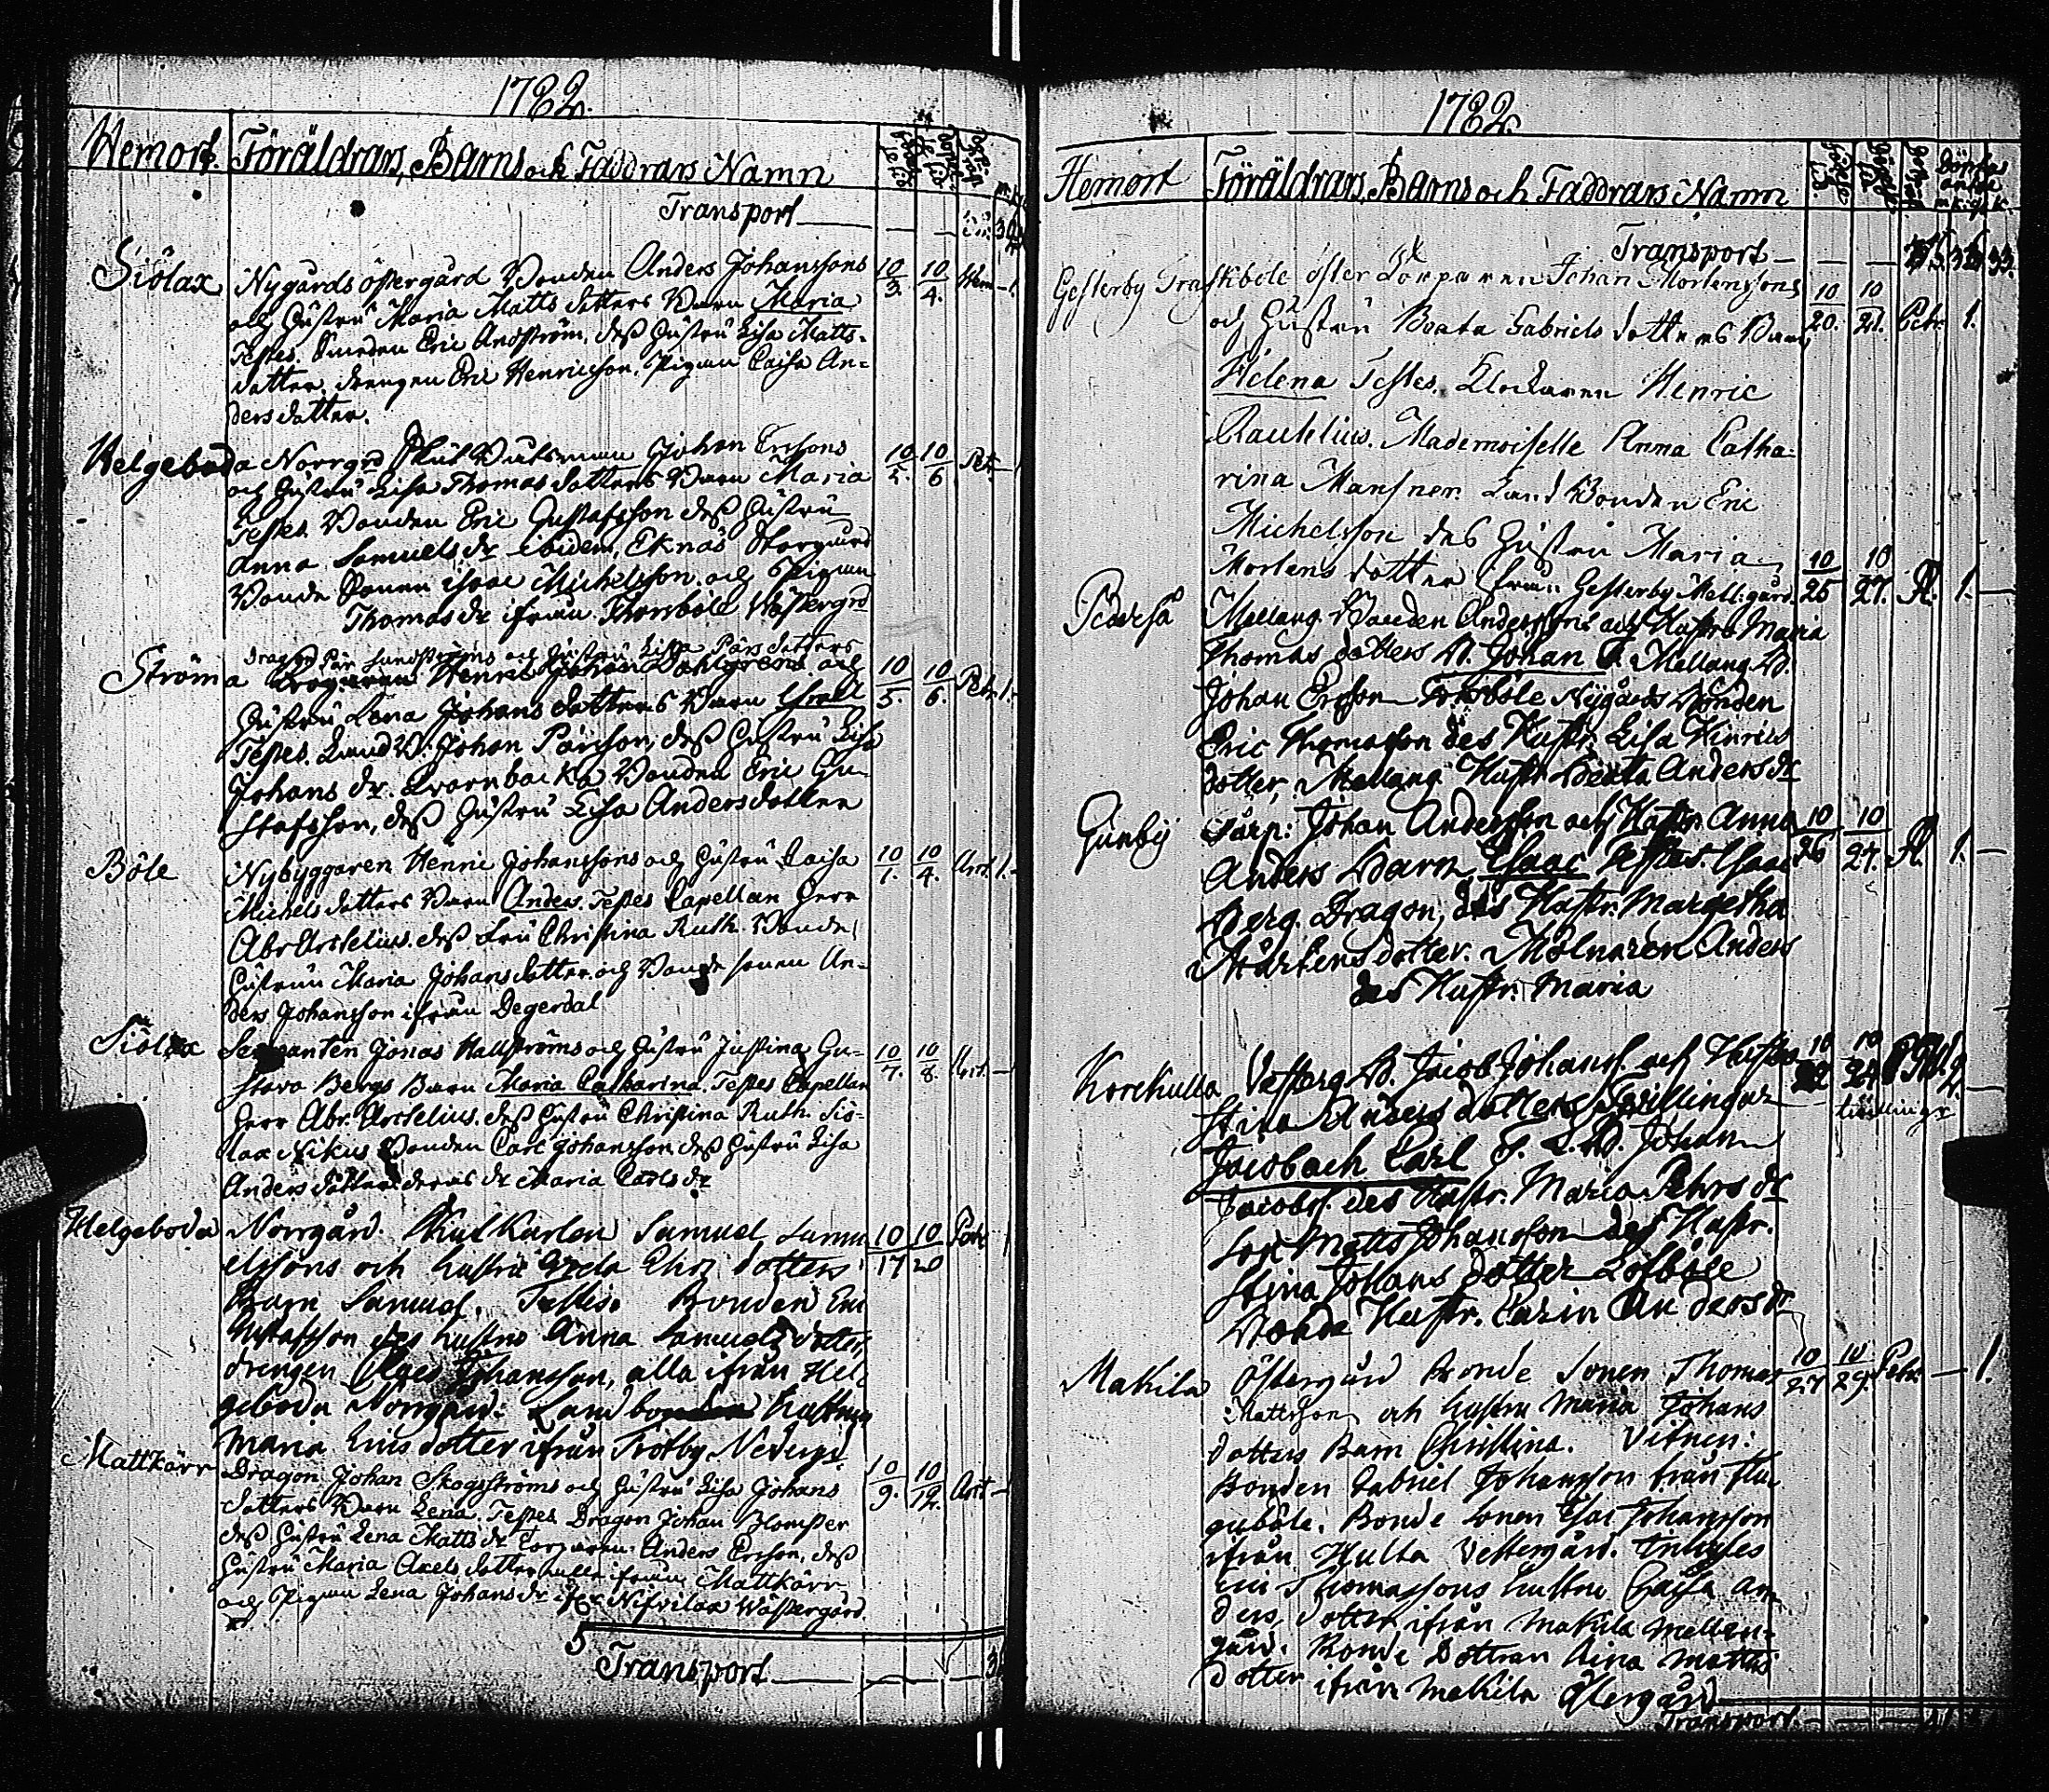 1782.
Hemort. Föräldrars, Barns och Faddrars Namn
Transport
Siölax Nygårds östergård Bonden Anders Johanssons 10/3. 10/4. Hem 1.
och Hustru Maria Matts dotters Barn Maria
Testes. Smeden Eric Andström, dess Hustru Lisa Matts-
dotter, drengen Eric Henricsson, Pigan Caisa An-
dersdotter.
Helgeboda Norrgrd Johan Ersons 10/5. 10/6. Petr.
och Hustru Lisa Thomas dotters Barn Maria
Testes Bonden Eric Gustafsson dess Hustru
Anna Samuels dr ibidem, Eknäs Storgård
Bonde Sonen Isaac Michelsson och Pigan
Thomas dr ifrån Thorsböle Wästergrd
Dragon Pär Sundströms och Hustru Lisa Pärs dotters
Ströma Henric Johan och 10/5. 10/6. Petr. 1.
Hustru Lena Johans dotters Barn Israel
Testes. Land B. Johan Pärsson, dess Hustru Lisa
Johans dr. Qvarnbacka Bonden Eric Gu-
stafsson, dess Hustru Lisa Andersdotter
Böle Nybyggaren Henric Johanssons och Hustru Caisa 10/1. 10/4. Arct. 1.
Michels dotters Barn Anders. Testes Capellan Herr
Abr Arctelius. dess Fru Christina Ruth. Bonde
Hustrun Maria Johans dotter och Bonde sonen An-
ders Johansson ifrån Degerdal
Siölax Sergianten Jonas Hallströms och Hustru Justina Gu- 10/7. 10/8. Arct.
stava Bergs Barn Maria Catharina. Testes Capellan
Herr Abr. Arctelius. dess Hustru Christina Ruth. Siö-
lax Nikus Bonden Carl Johansson dess Hustru Lisa
Anders dotter deras dr Maria Carls dr
Helgeboda Norrgård. Samuel Samu 10/17 10/20 Petr 1
elssons och hustru Greta Ehrs dotters
Barn Samuel. Testes. Bonden Eric
Gustafsson des hustru Anna Samuels dotter,
drengen Claes Johansson, alla ifrån Hel-
geboda Norrgård: Land hustrun
Maria Erics dotter ifrån Trotby Nedergd.
Mattkärr Dragon Johan Skogströms och Hustru Lisa Johans 10/9. 10/12. Arct
dotters Barn Lena. Testes Dragon Johan Blomster
dess Hustru Lena Matts dr Torparen Anders Ersson, dess
Hustru Maria Axels dotter alla ifrån Mattkärr
och Pigan Lena Johans dr ifr Nifvilax Wästergård.
5
Transport
1782.
Hemort Föräldrars, Barns och Faddrars Namn
Transport
Gesterby Träskböle öster Torparen Johan Mortenssons 10/20. 10/21. Petr. 1.
och Hustru Beata Gabriels dotters Barn
Helena Testes. Klockaren Henric
Rauthelius. Mademoiselle Anna Catha-
rina Mansner. Land Bonden Eric
Michelsson des Hustru Maria
Mortens dotter från Gesterby Mell:gård.
Pederså Mellang. Bonden Anders och Hustru Maria 10/25 10/27. 1.
Thomas dotters B. Johan T. Mellang. B.
Johan Ersson Nygårds Bonden
Eric Thomasson des Hustr. Lisa Hinrics
dotter, Mellang. Hustr Beata Anders dr
Gunby Tårp: Johan Andersson och Hustr. Anna 10/26 10/27. 1.
Anders Barn, Isaac Testes Isaac
Berg. Dragon, des Hustr. Margetha
Mårtens dotter. Mölnaren Anders
des Hustr. Maria
Korskulla Vesterg. B. Jacob Johans. och Hustru 10/22 10/24 2.
Stina Anders dotters Tvillingar tvillingar
Jacob och Carl T. L. B. Johan
Jacobs. des Hustr. Maria Pehrs dr
Matts Johansson des Hustr.
Stina Johans dotter Löfböle
Bonde Hustr. Carin Anders dr
Makila Östergård Bonde Sonen Thomas 10/27 10/29. Petr. 1.
Mattsson och hustru Maria Johans
dotters Barn Christina. Vitnen:
Bonden Gabriel Johansson från Flu-
guböle. Bonde Sonen Esai Johansson
ifrån Hulta Vestergård. Inhyses
Eric Thomassons hustru Caisa An-
ders dotter ifrån Makila Mellan-
gård. Bonde Dottran Stina Matts
dotter ifrån Makila Östergård
Transport.